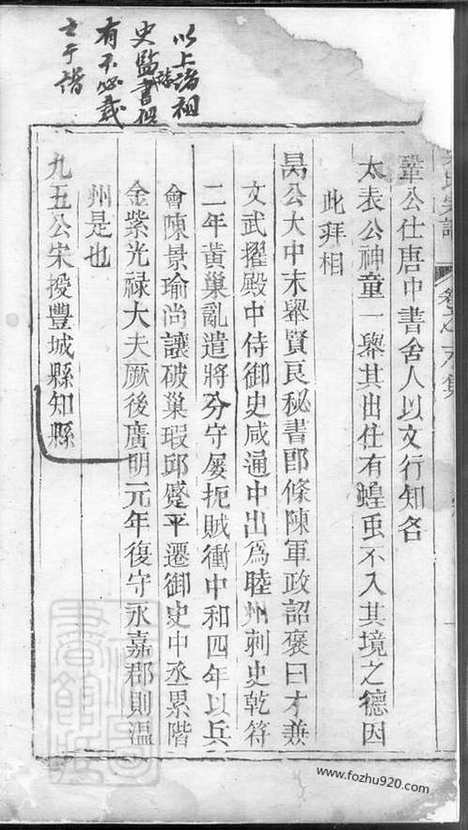 以上諸祖
史監書但
有不必載
鞏公仕唐中書舍人以文行知名
太表公神童一舉其出仕有蝗虫不入其境之德因
此拜相
昺公大中末舉賢良秘書郎條陳軍政詔褒曰才兼
文武擢殿中侍御史咸通中出為睦州刺史乾符
二年黃巢亂遣將分守屡扼賊衝中和四年以兵
會陳景瑜尚讓破巢瑕邱蹙平遷御史中丞累階
金紫光禄大夫厥後廣明元年復守永嘉郡則溫
州是也
九五公宋授豐城縣知縣
www.fozhu920.com